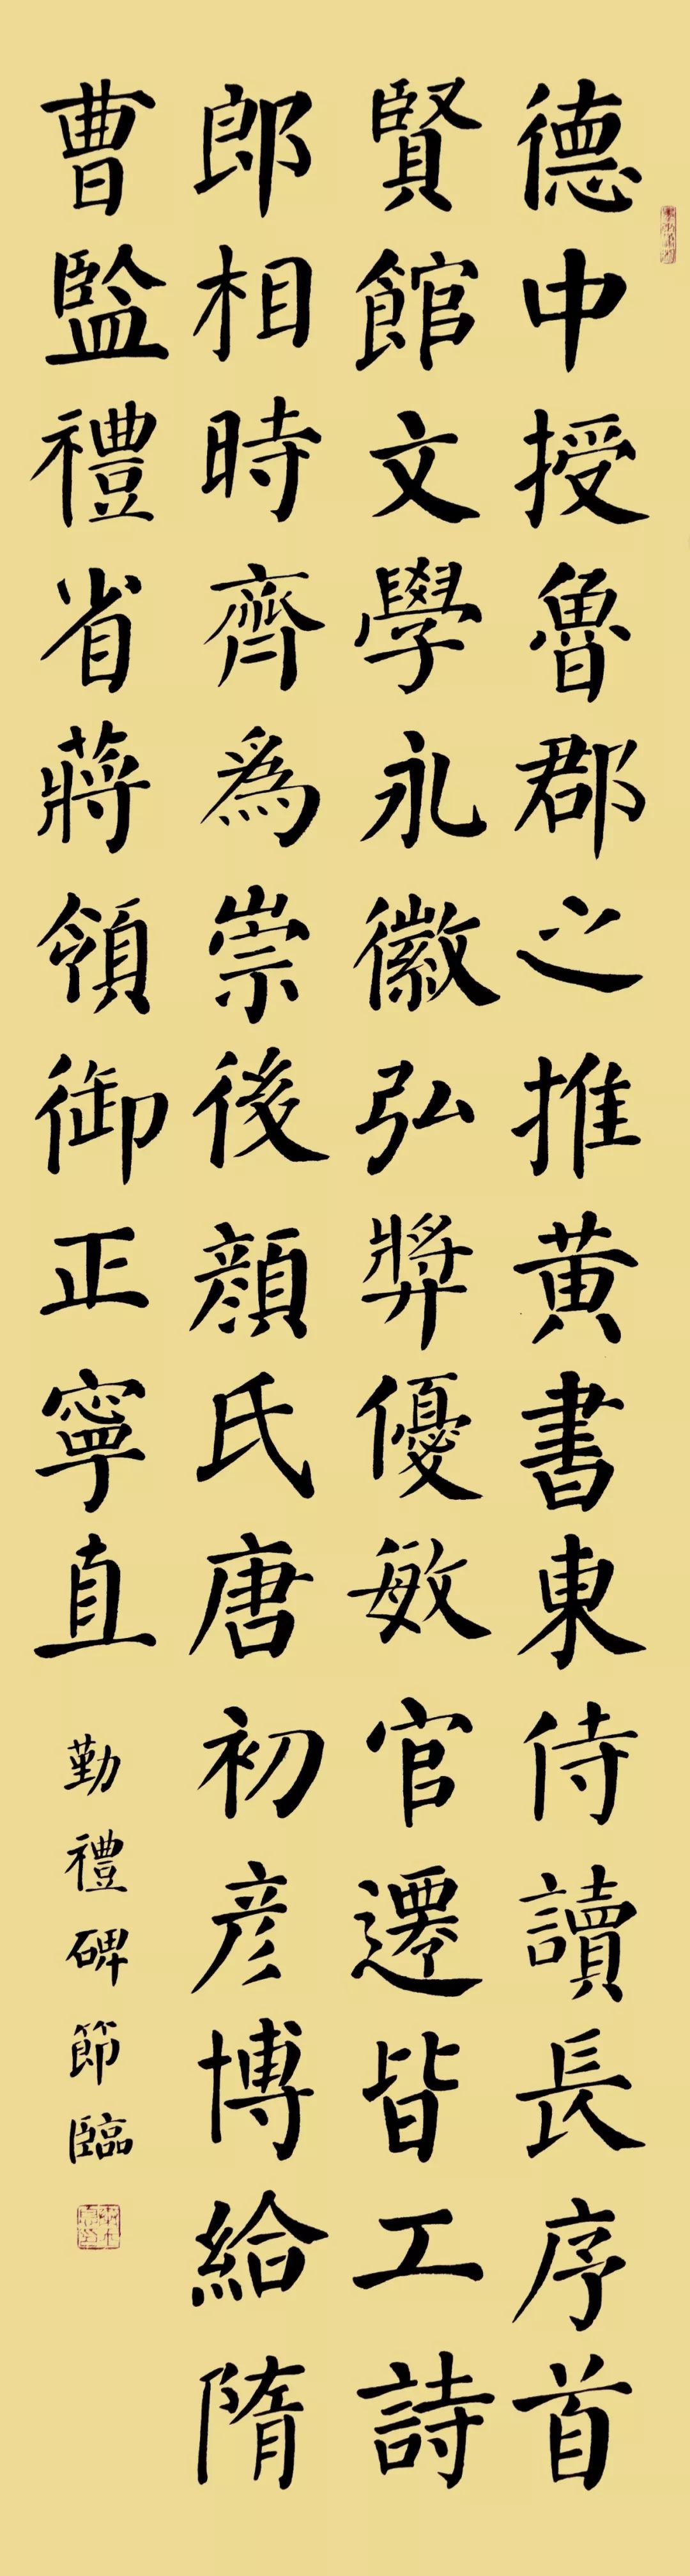 德中授魯郡之推黃書東侍讀長序首
賢館文學永徽弘獎優敏官遷皆工詩
郎相時齊為崇後顏氏唐初彥博給隋
曹監禮省蔣領御正寧直
勤禮碑節臨